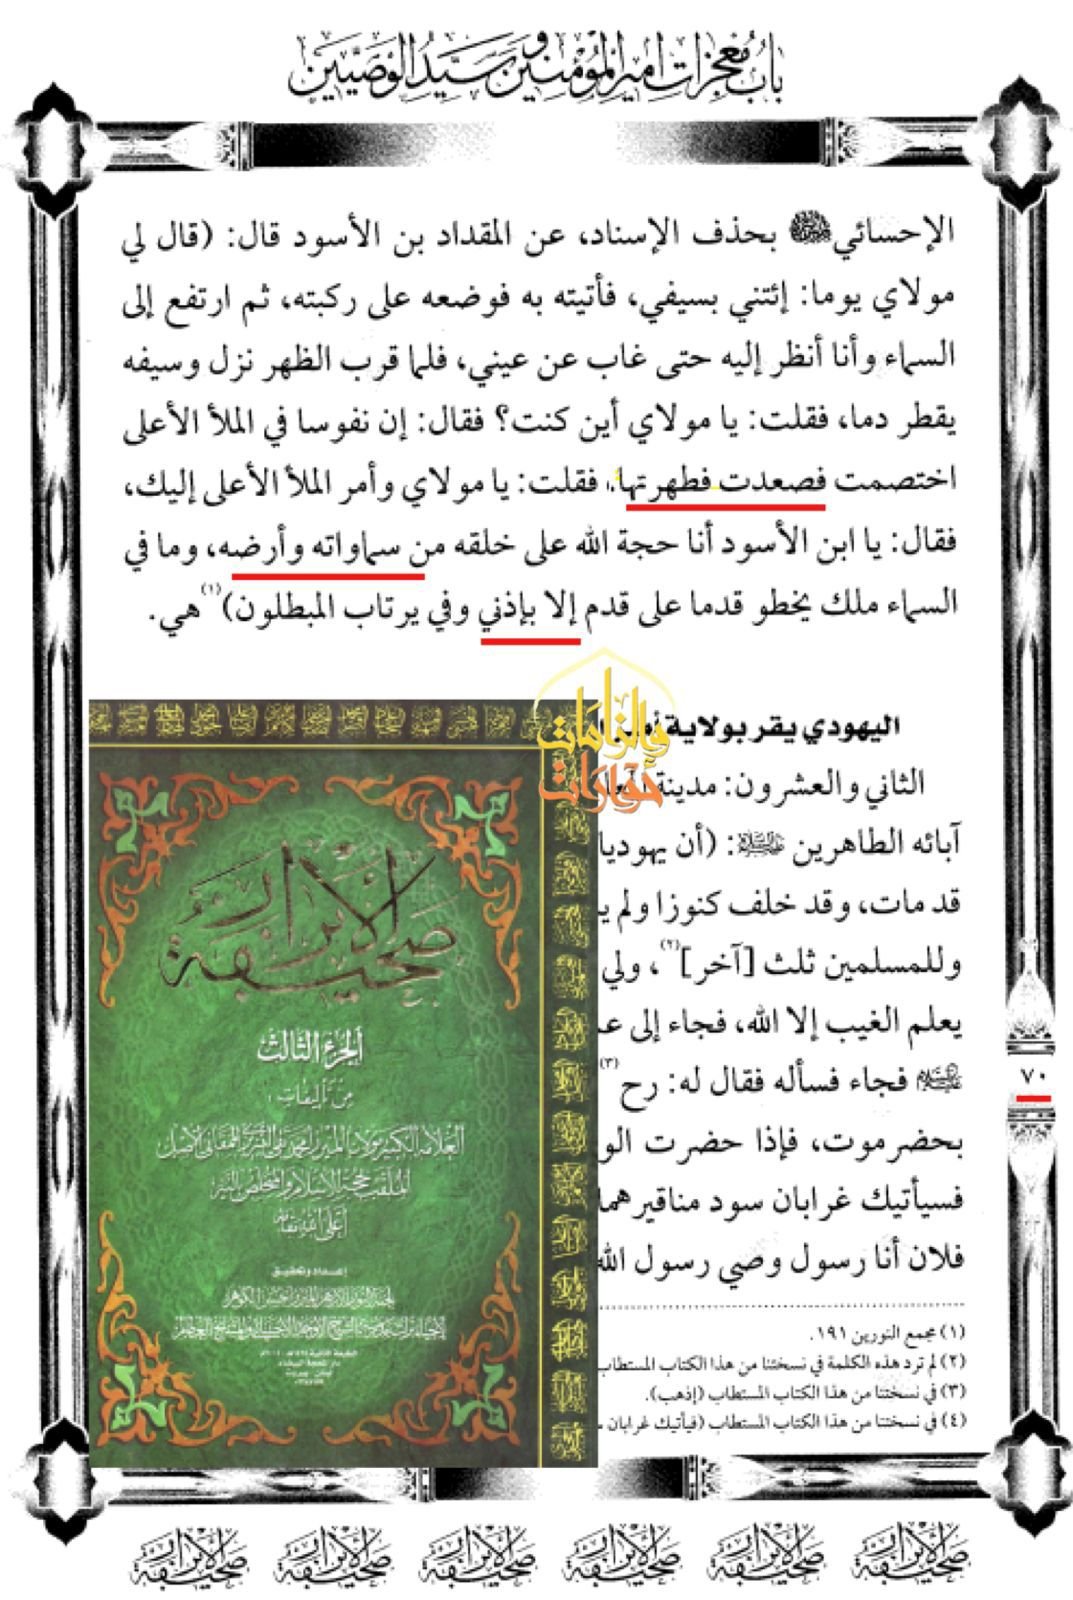 باب معجزات أمير المؤمنين وسيد الوصيين
الإحسائي بحذف الإسناد، عن المقداد بن الأسود قال: (قال لي
مولاي يوما: إئتني بسيفي، فأتيته به فوضعه على ركبته، ثم ارتفع إلى
السماء وأنا أنظر إليه حتى غاب عن عيني، فلما قرب الظهر نزل وسيفه
يقطر دما، فقلت: يا مولاي أين كنت؟ فقال: إن نفوسا في الملأ الأعلى
اختصمت فصعدت فطهرتها، فقلت: يا مولاي وأمر الملأ الأعلى إليك،
فقال: يا ابن الأسود أنا حجة الله على خلقه من سماواته وأرضه، وما في
السماء ملك يخطو قدما على قدم إلا بإذني وفي يرتاب المبطلون)(١) هي.
اليهودي يقر بولاية
الثاني والعشرون: مدينة
آبائه الطاهرين عليهم السلام: (أن يهوديا
قد مات، وقد خلف كنوزا ولم
وللمسلمين ثلث [آخر](٢)، ولي
يعلم الغيب إلا الله، فجاء إلى
فجاء فسأله فقال له: رح(٣)
بحضرموت، فإذا حضرت
فسيأتيك غرابان سود مناقيرهما
فلان أنا رسول وصي رسول الله
٧٠
(١) مجمع النورين ١٩١.
(٢) لم ترد هذه الكلمة في نسختنا من هذا الكتاب المستطاب
(٣) في نسختنا من هذا الكتاب المستطاب (إذهب).
(٤) في نسختنا من هذا الكتاب المستطاب (فيأتيك غرابان
حوارات
والزامات
صحيفة الأبرار
الجزء الثالث
من تأليفات:
العلامة الكبير مولانا الميرزا محمد تقي الشريف المامقاني الأصل
الملقب بحجة الإسلام والمتخلص بالنير
أعلى الله مقامه
إعداد وتحقيق
صحيفة الأبرار صحيفة الأبرار صحيفة الأبرار صحيفة الأبرار صحيفة الأبرار صحيفة الأبرار